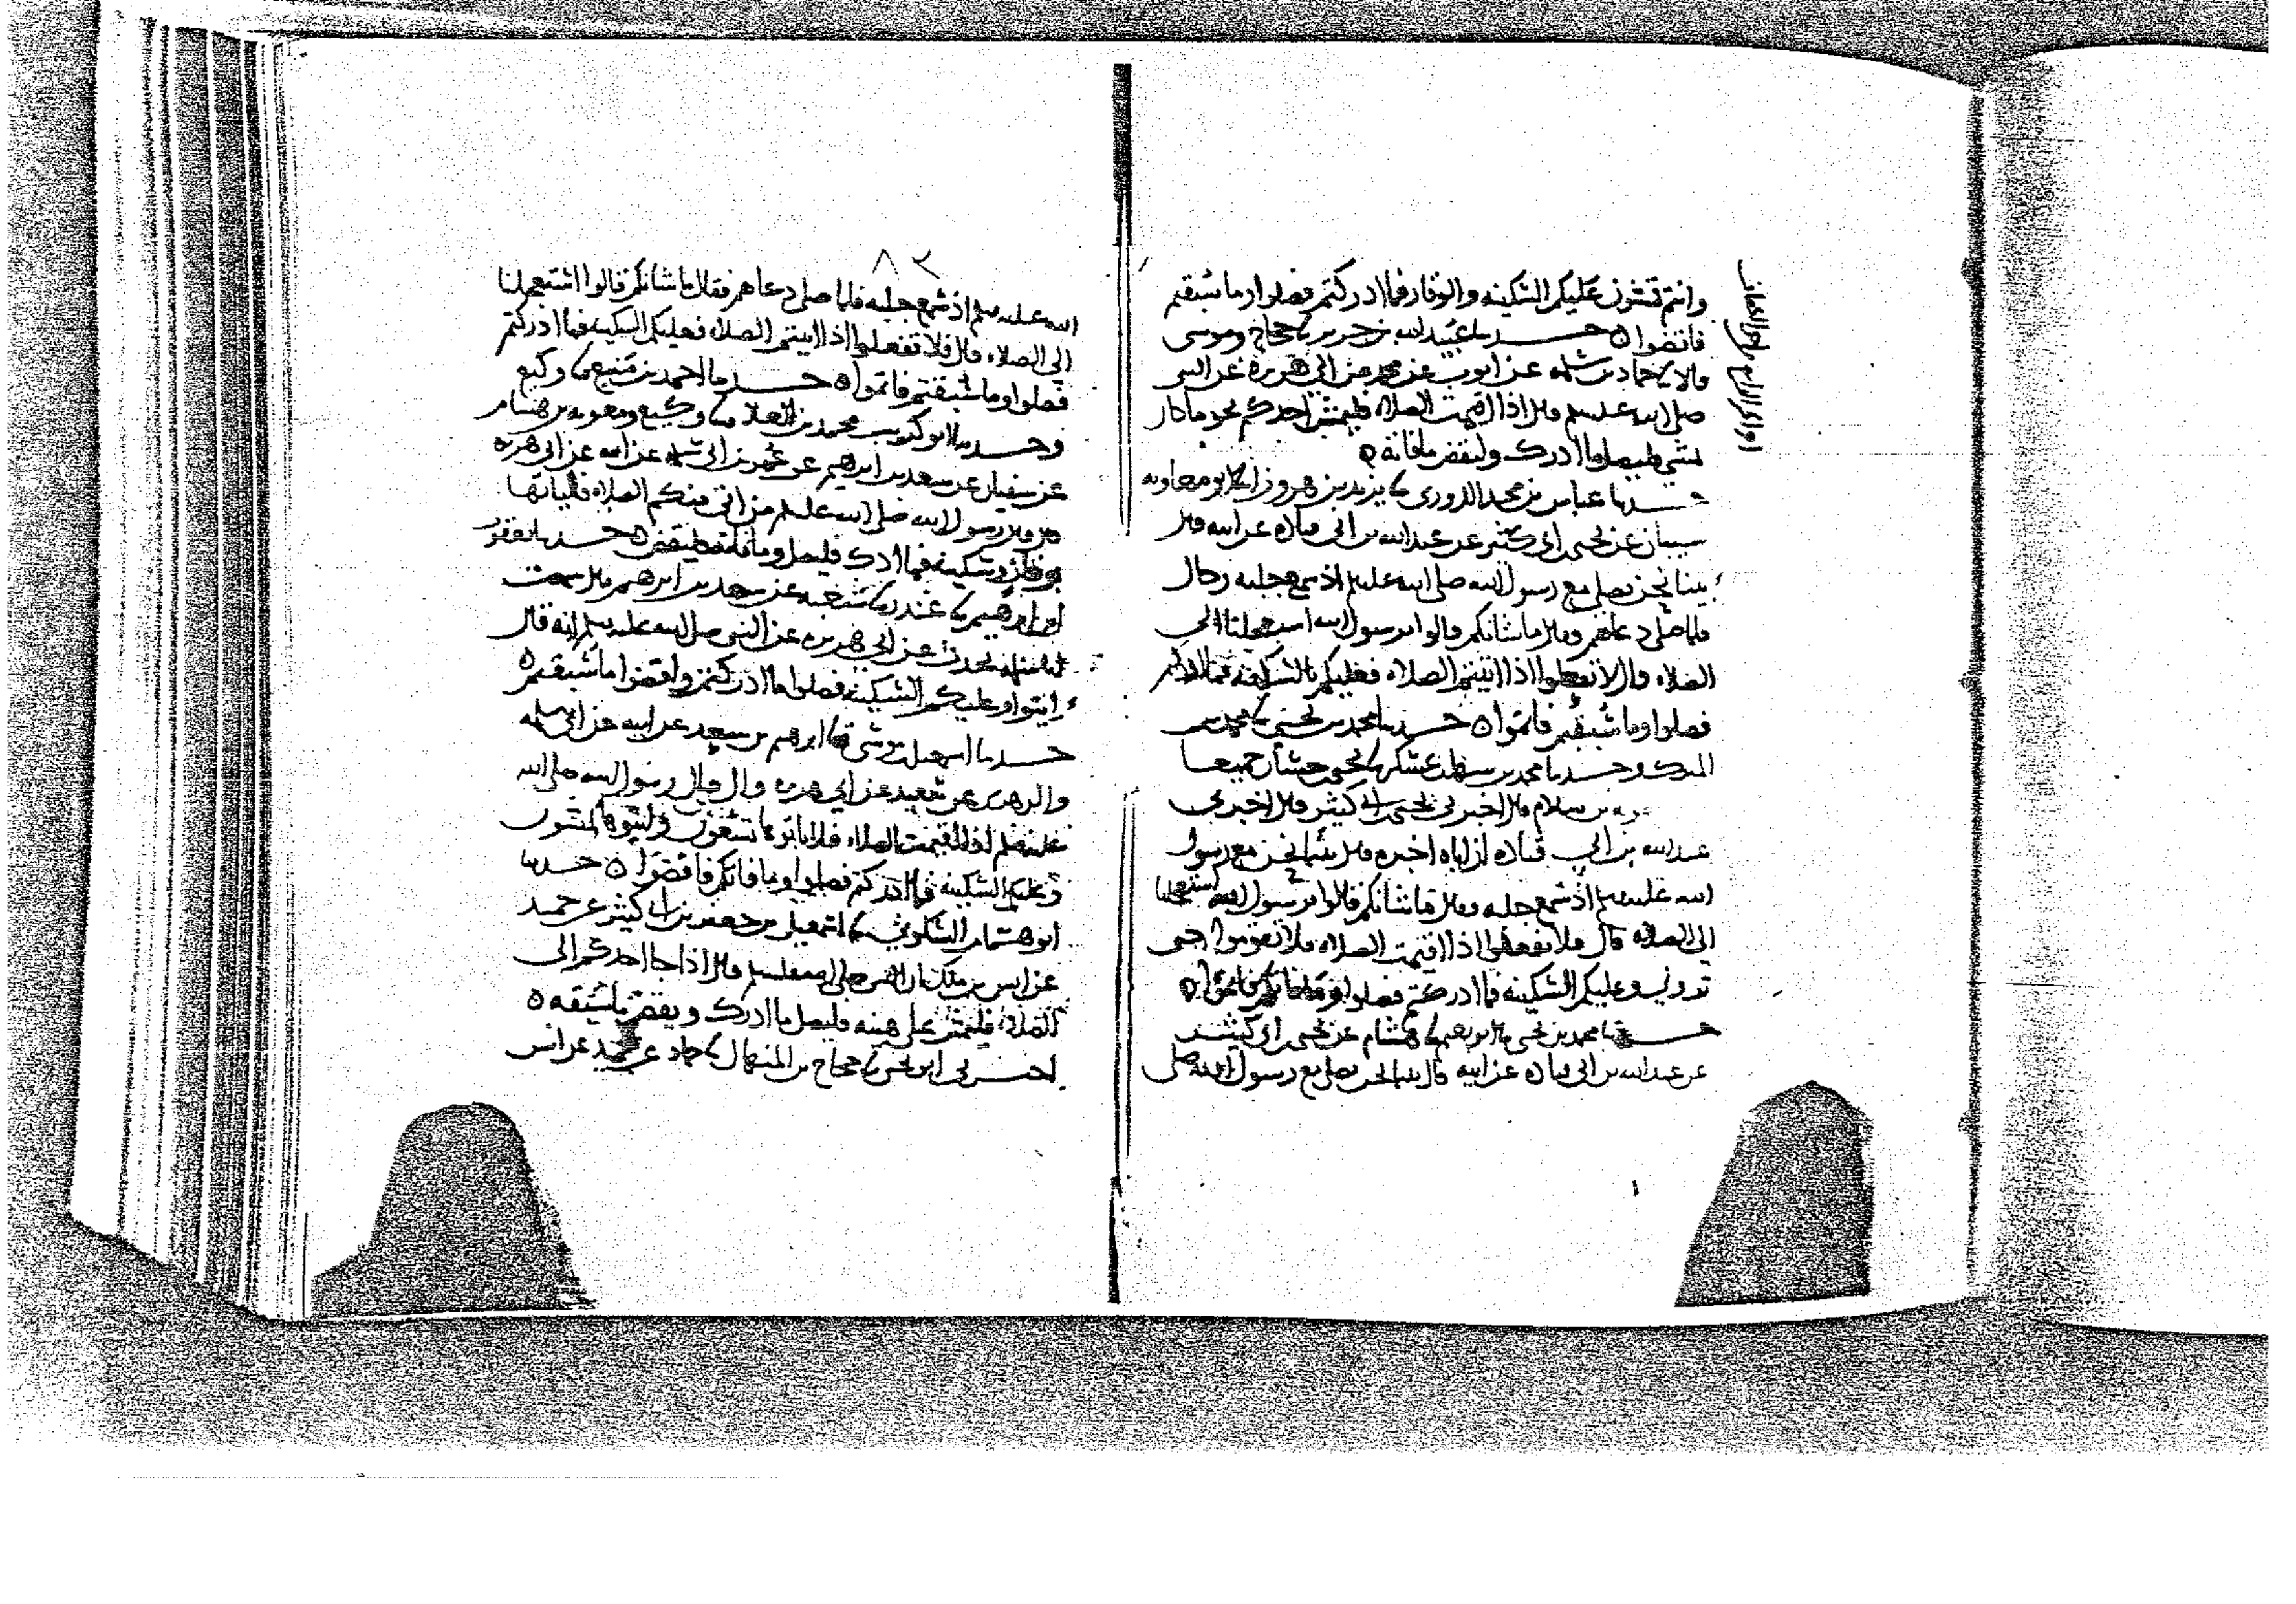 وانتم تمشون عليكم السكينه والوقار فما ادركتم فصلوا وما سبقتم
فاقضوا ه حدثنا عبيد الله بن جرير نا حجاج وموسى
قالا نا حماد بن سلمه عن ايوب عن محمد عن ابي هريرة عن النبي
صلى الله عليه وسلم قال اذا اقيمت الصلاه فليمش احدكم نحو ما كان
يمشي فليصل ما ادرك وليقض ما فاته ه
حدثنا عباس بن محمد الدوري نا يزيد بن هرون انا ابو معاويه
شيبان عن يحيى بن ابي كثير عن عبد الله بن ابي قتاده عن ابيه قال
بينا نحن نصلي مع رسول الله صلى الله عليه وسلم اذ سمع جلبه رجال
فلما صلى دعاهم وقال ما شانكم قالوا يرسول الله استعجلنا الى
الصلاه قال لا تعجلوا اذا اتيتم الصلاه فعليكم بالسكينه فما ادركتم
فصلوا وما سبقتم فاتموا ه حدثنا محمد بن يحيى نا محمد بن
المبرك وحدثنا محمد بن سهل بن عسكر نا يحيى بن حسان جميعا
بن سلام قال اخبرني يحيى بن ابي كثير قال اخبرني
عبد الله بن ابي قتاده ان اباه اخبره قال بينما نحن مع رسول
الله عليه وسلم اذ سمع جلبه وقال ما شانكم قالوا يرسول الله استعجلنا
الى الصلاه قال فلا تفعلوا اذا اقيمت الصلاه فلا تقوموا حتى
تروني وعليكم السكينه فما ادركتم فصلوا وما فاتكم فاتموا ه
حدثنا محمد بن يحيى نا ابو نعيم نا هشام عن يحيى بن ابي كثير
عن عبد الله بن ابي قتاده عن ابيه قال بينما نحن نصلي مع رسول الله صلى
٨٢
الله عليه وسلم اذ سمع جلبه فلما صلى دعاهم فقال ما شانكم قالوا استعجلنا
الى الصلاه قال فلا تفعلوا اذا اتيتم الصلاه فعليكم السكينه فما ادركتم
فصلوا وما سبقتم فاتموا ه حدثنا احمد بن منيع نا وكيع
وحدثنا ابو كريب محمد بن العلا نا وكيع ومعويه بن هشام
عن سفيان عن سعد بن ابرهيم عن عمر بن ابي سلمه عن ابيه عن ابي هريره
قال قال رسول الله صلى الله عليه وسلم من اتى منكم الصلاه فلياتها
بوقار وسكينه فما ادرك فليصل وما فاته فليقض ه حدثنا يعقوب
بن ابرهيم نا غندر نا شعبه عن سعد بن ابرهيم قال سمعت
ابا سلمه يحدث عن ابي هريره عن النبي صلى الله عليه وسلم انه قال
ايتوا وعليكم السكينه فصلوا ما ادركتم واقضوا ما سبقتم ه
حدثنا اسمعيل بن موسى نا ابرهيم بن سعد عن ابيه عن ابي سلمه
والزهري عن سعيد عن ابي هريره قال قال رسول الله صلى الله
عليه وسلم اذا اقيمت الصلاه فلا تاتوها تسعون وايتوها تمشون
وعليكم السكينه فما ادركتم فصلوا وما فاتكم فاقضوا ه حدثنا
ابو هشام السكوني نا اسمعيل بن جعفر بن ابي كثير عن حميد
عن انس بن ملك ان النبي صلى الله عليه وسلم قال اذا جا احدكم الى
الصلاه فليمش على هينه فليصل ما ادرك ويقض ما سبقه ه
اخبرني ابو يحيى نا حجاج بن المنهال نا حماد عن حميد عن انس